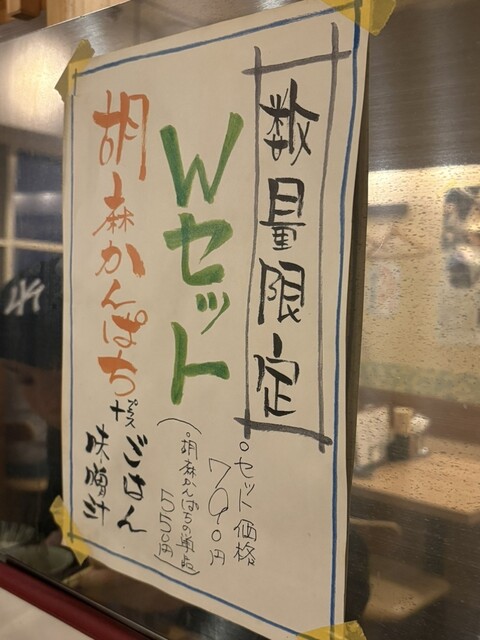 数量限定
Wセット
胡麻かんぱち
+プラス
ごはん
味噌汁
○セット価格
790円
(○胡麻かんぱちの単品
550円)